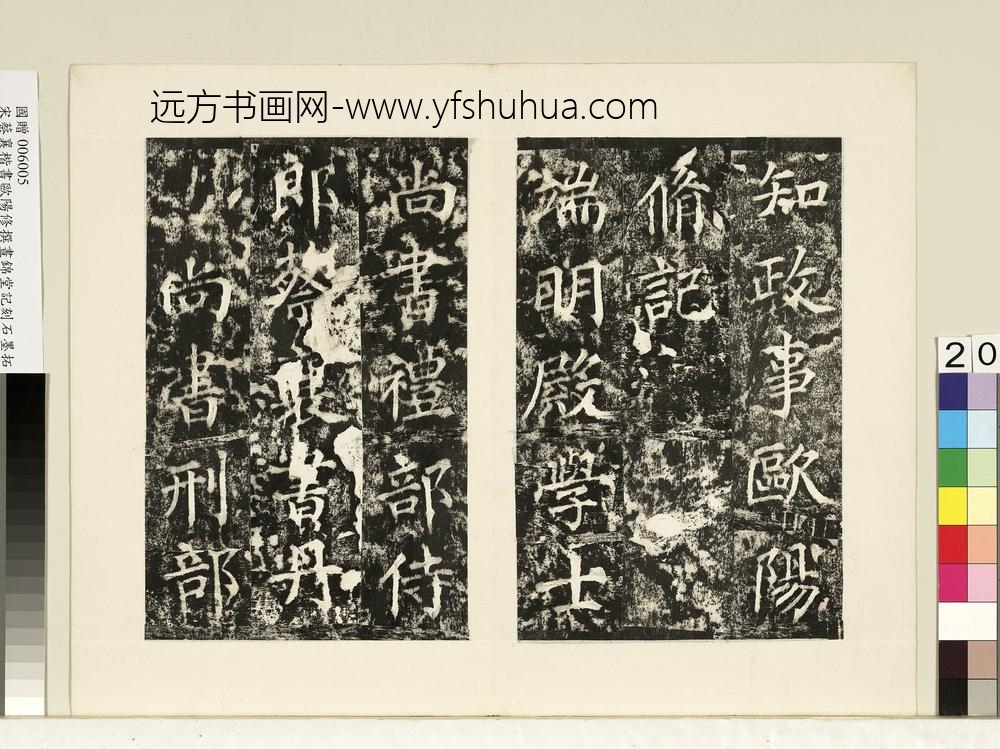 远方书画网-www.yfshuhua.com
知政事歐陽
脩記
端明殿學士
尚書禮部侍
郎蔡襄書丹
尚書刑部
國贈 006005
宋蔡襄楷書歐陽修撰晝錦堂記刻石墨拓
20